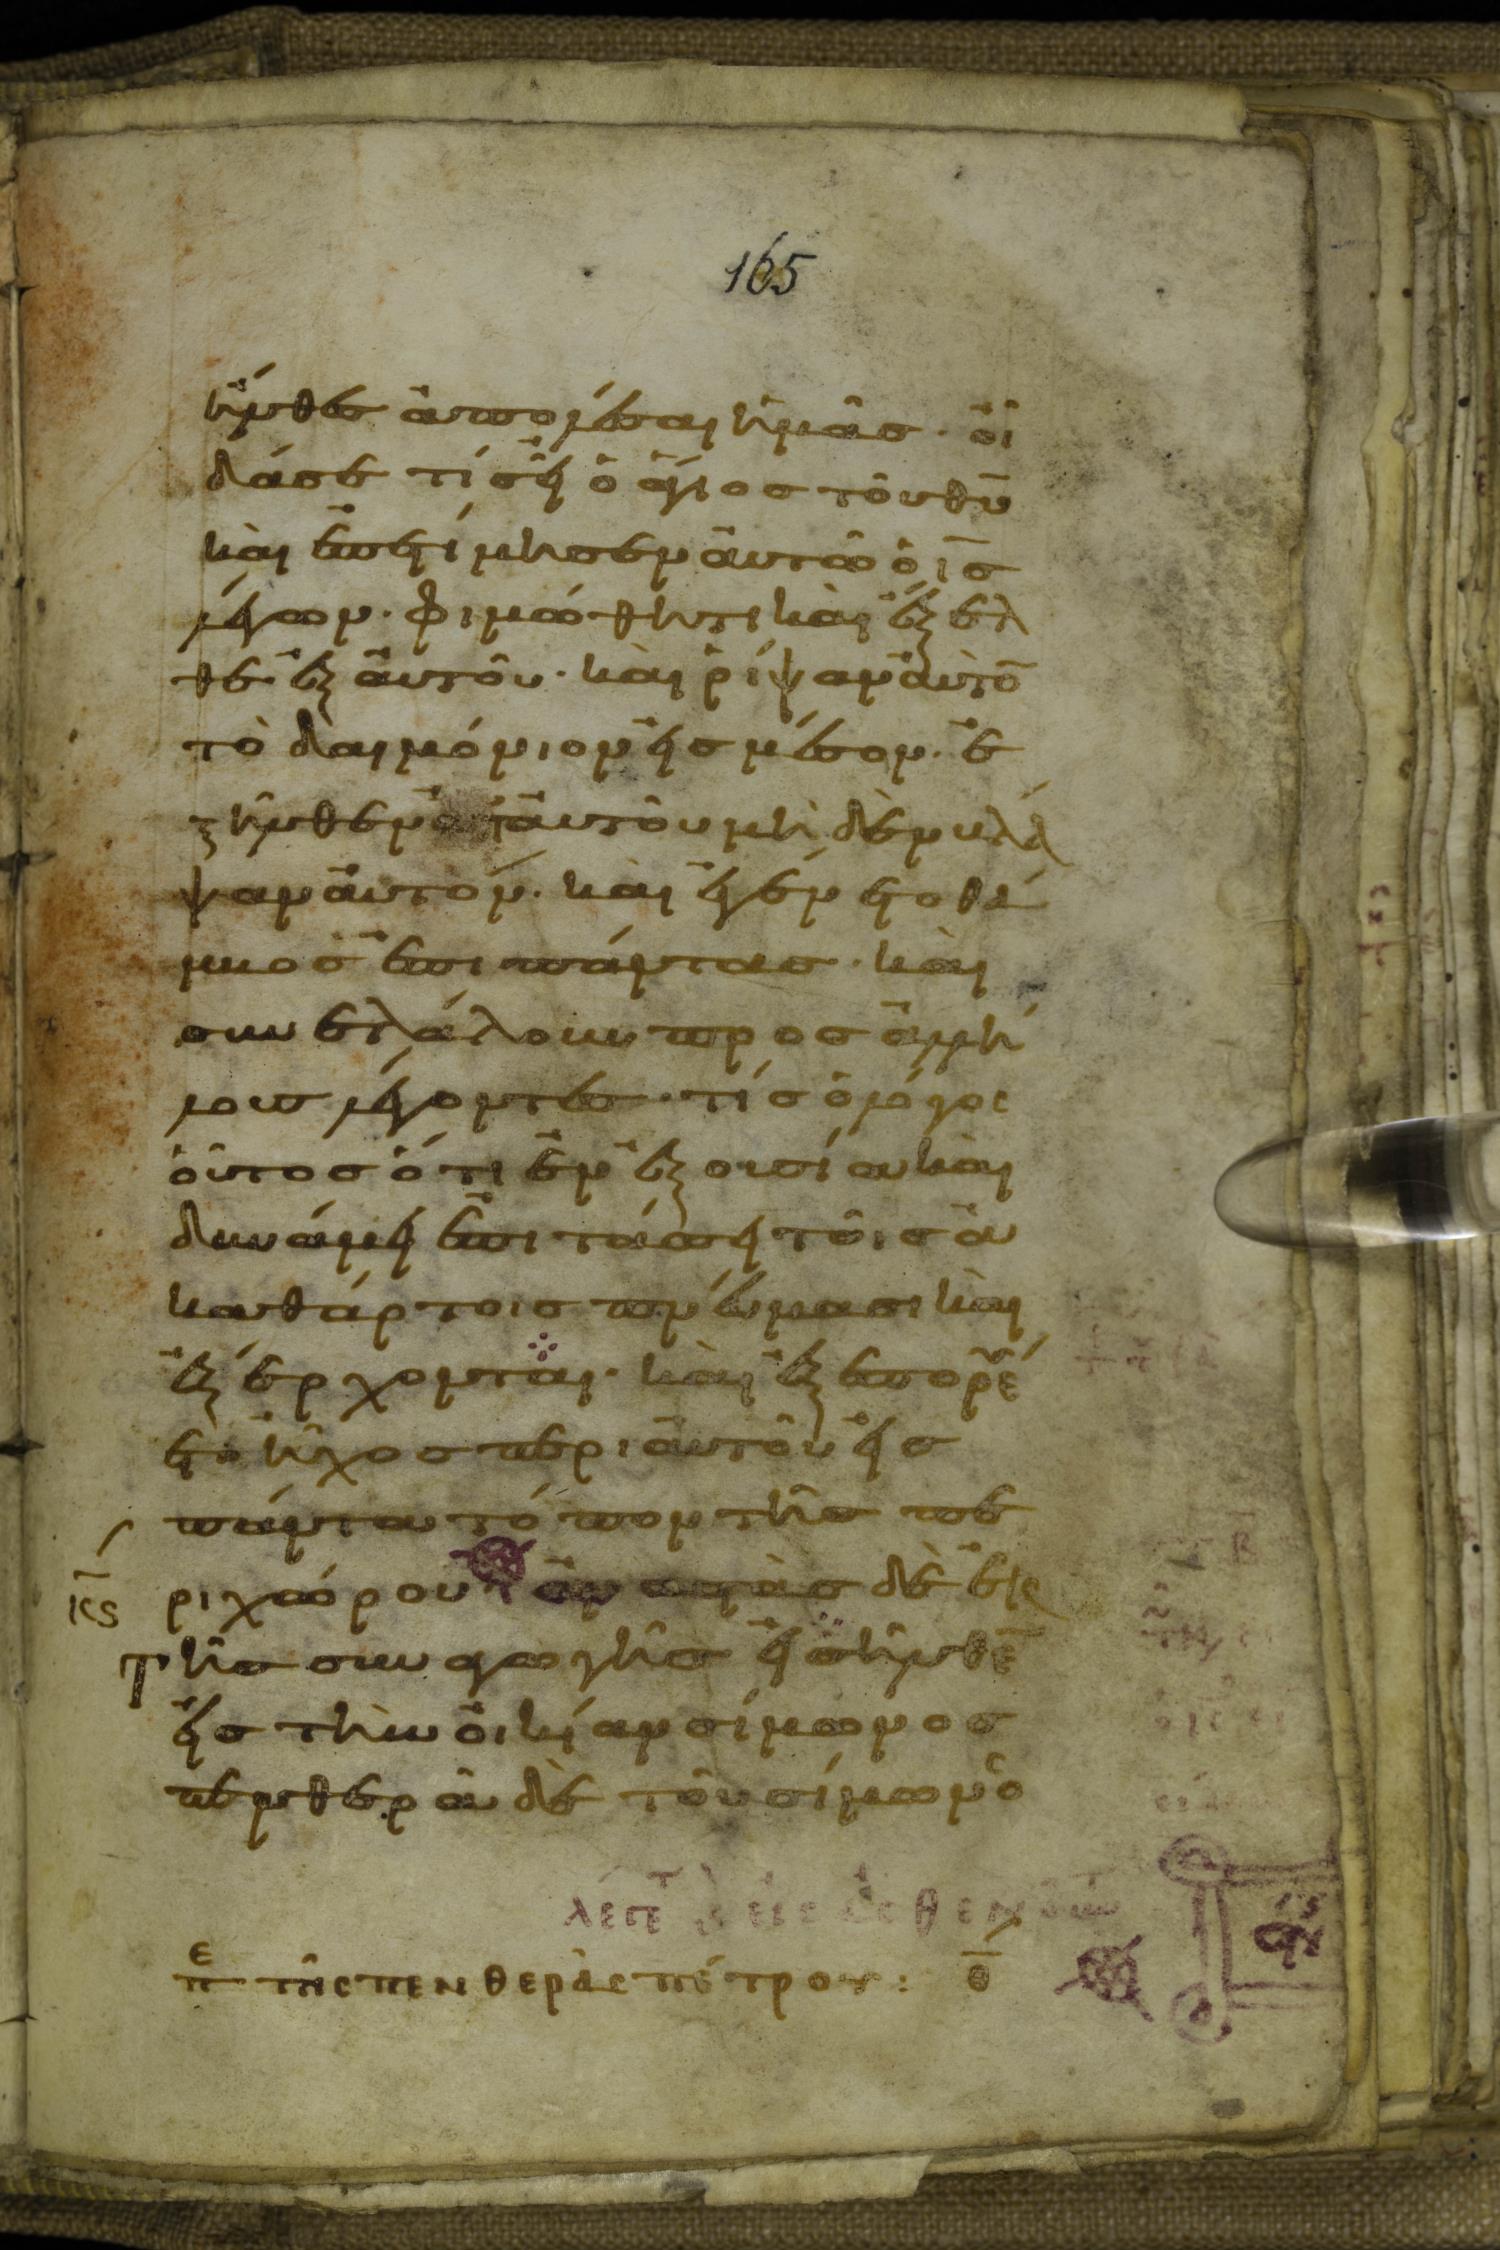 165
ἦλθες ἀπολέσαι ἡμᾶς· οἶ
δάσε τίς εἶ ὁ ἅγιος τοῦ θῦ
καὶ ἐπετίμησεν αὐτῶ ὁ ις
λέγων· φιμώθητι καὶ ἔξελ
θε ἐξ αὐτοῦ· καὶ ῥίψαν αὐτὸ
τὸ δαιμόνιον εἰς μέσον· ἐ
ξῆλθεν ἀπ αὐτοῦ μηδὲν βλά
ψαν αὐτόν· καὶ ἐγένετο θά
μβος ἐπι πάντας· καὶ
συνελάλουν προς ἀλλή
λους λέγοντες· τίς ὁ λόγος
οὗτος ὅτι ἐν ἐξουσία καὶ
δυνάμει ἐπιτάσσει τοῖς ἀ
καθάρτοις πνεύμασι καὶ
ἐξέρχονται· καὶ ἐξεπορεύ
ετο ἦχος περι αὐτοῦ εἰς
πάντα τόπον τῆς πε
ριχώρου ἀναστὰς δὲ ἐκ
τῆς συναγωγῆς εἰσῆλθε
εἰς τὴν οἰκίαν σίμωνος
πενθερὰ δὲ τοῦ σίμωνο
ις
πε τῆς πενθερᾶς πέτρου: θ